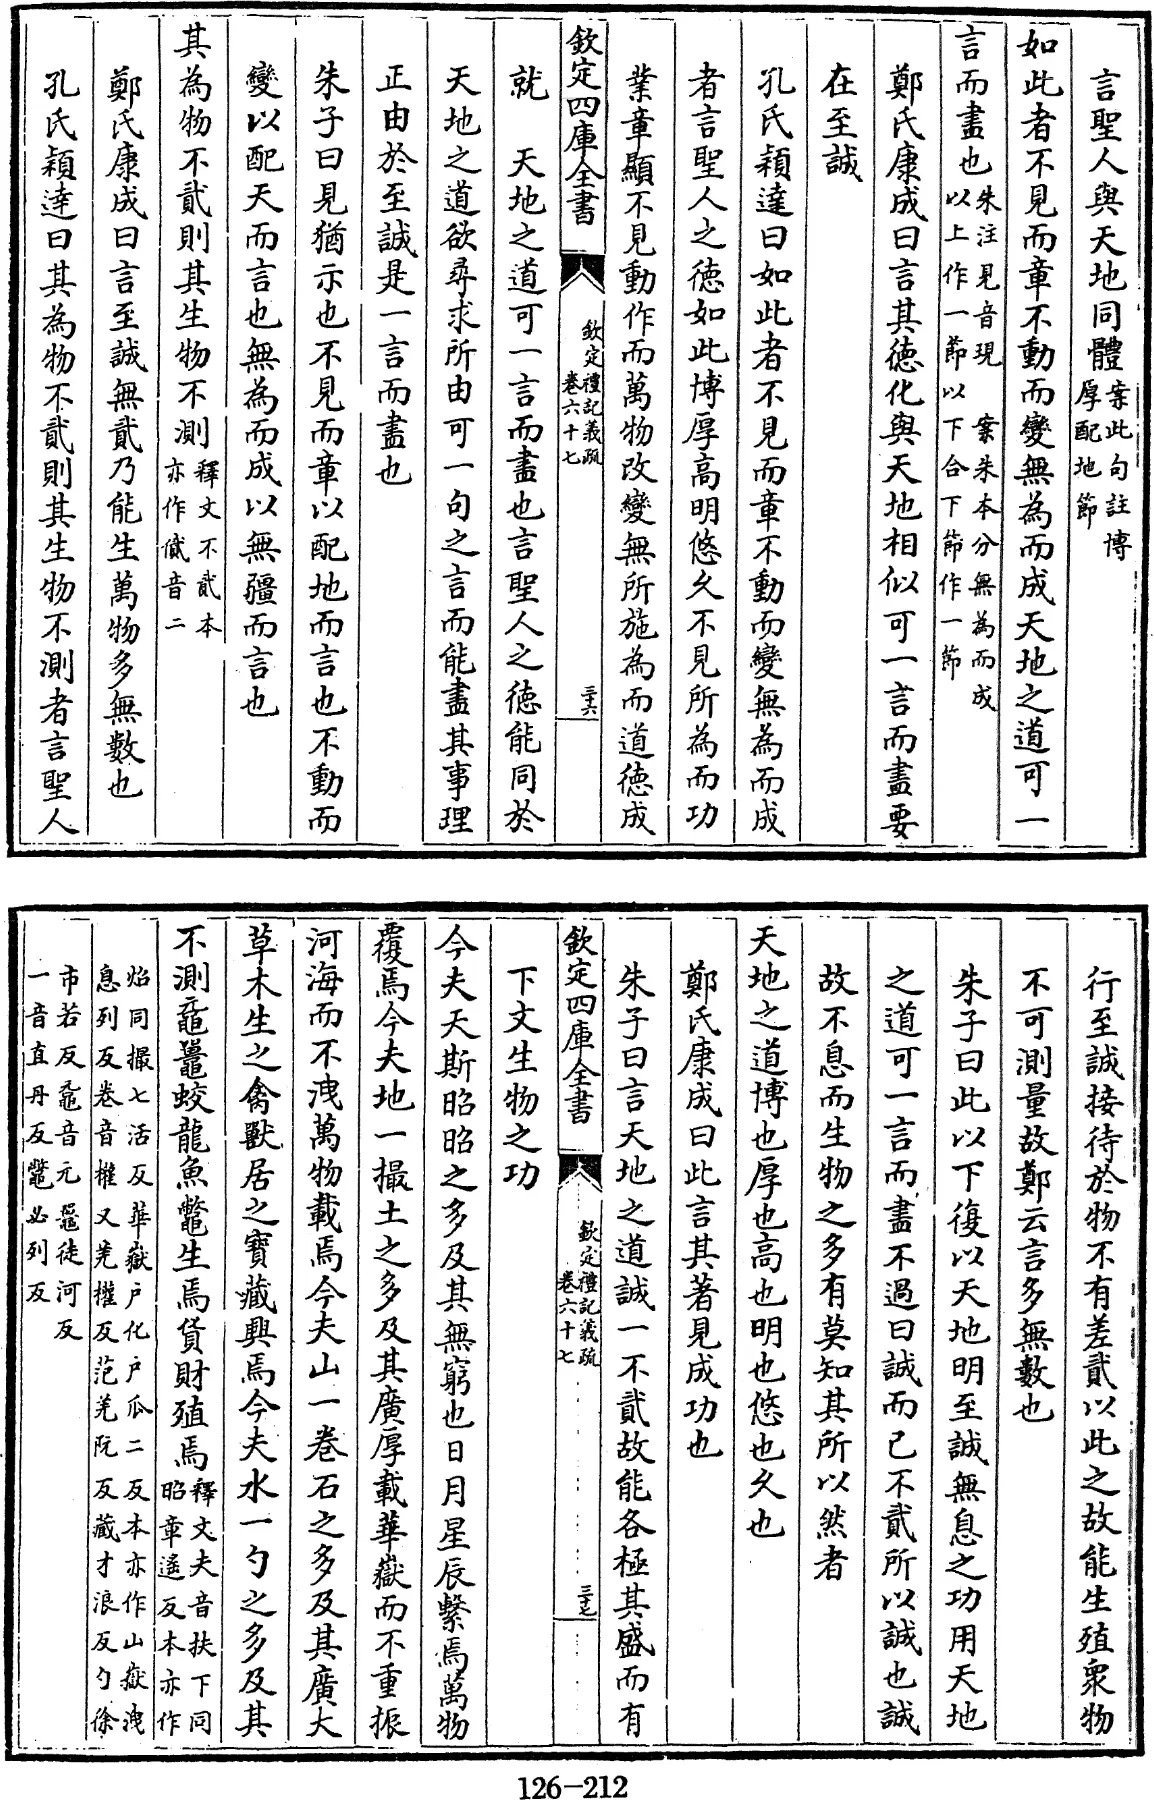 言聖人與天地同體案此句註博厚配地節
如此者不見而章不動而變無為而成天地之道可一
言而盡也朱注見音現　案朱本分無為而成以上作一節以下合下節作一節
鄭氏康成曰言其徳化與天地相似可一言而盡要
在至誠
孔氏穎達曰如此者不見而章不動而變無為而成
者言聖人之徳如此博厚高明悠久不見所為而功
業章顯不見動作而萬物改變無所施為而道徳成
欽定四庫全書
欽定禮記義疏
卷六十七
三十六
就　天地之道可一言而盡也言聖人之徳能同於
天地之道欲尋求所由可一句之言而能盡其事理
正由於至誠是一言而盡也
朱子曰見猶示也不見而章以配地而言也不動而
變以配天而言也無為而成以無疆而言也
其為物不貳則其生物不測釋文不貳本亦作㒃音二
鄭氏康成曰言至誠無貳乃能生萬物多無數也
孔氏穎達曰其為物不貳則其生物不測者言聖人
行至誠接待於物不有差貳以此之故能生殖衆物
不可測量故鄭云言多無數也
朱子曰此以下復以天地明至誠無息之功用天地
之道可一言而盡不過曰誠而已不貳所以誠也誠
故不息而生物之多有莫知其所以然者
天地之道博也厚也高也明也悠也久也
鄭氏康成曰此言其著見成功也
朱子曰言天地之道誠一不貳故能各極其盛而有
欽定四庫全書
欽定禮記義疏
卷六十七
三十七
下文生物之功
今夫天斯昭昭之多及其無窮也日月星辰繫焉萬物
覆焉今夫地一撮土之多及其廣厚載華嶽而不重振
河海而不洩萬物載焉今夫山一卷石之多及其廣大
草木生之禽獸居之寶藏興焉今夫水一勺之多及其
不測黿鼉蛟龍魚鼈生焉貨財殖焉釋文夫音扶下同昭章遙反本亦作
炤同撮七活反華嶽戶化戶瓜二反本亦作山嶽洩息列反卷音權又羌權反范羌阮反藏才浪反勺徐
市若反黿音元鼉徒河反一音直丹反鼈必列反
126-212